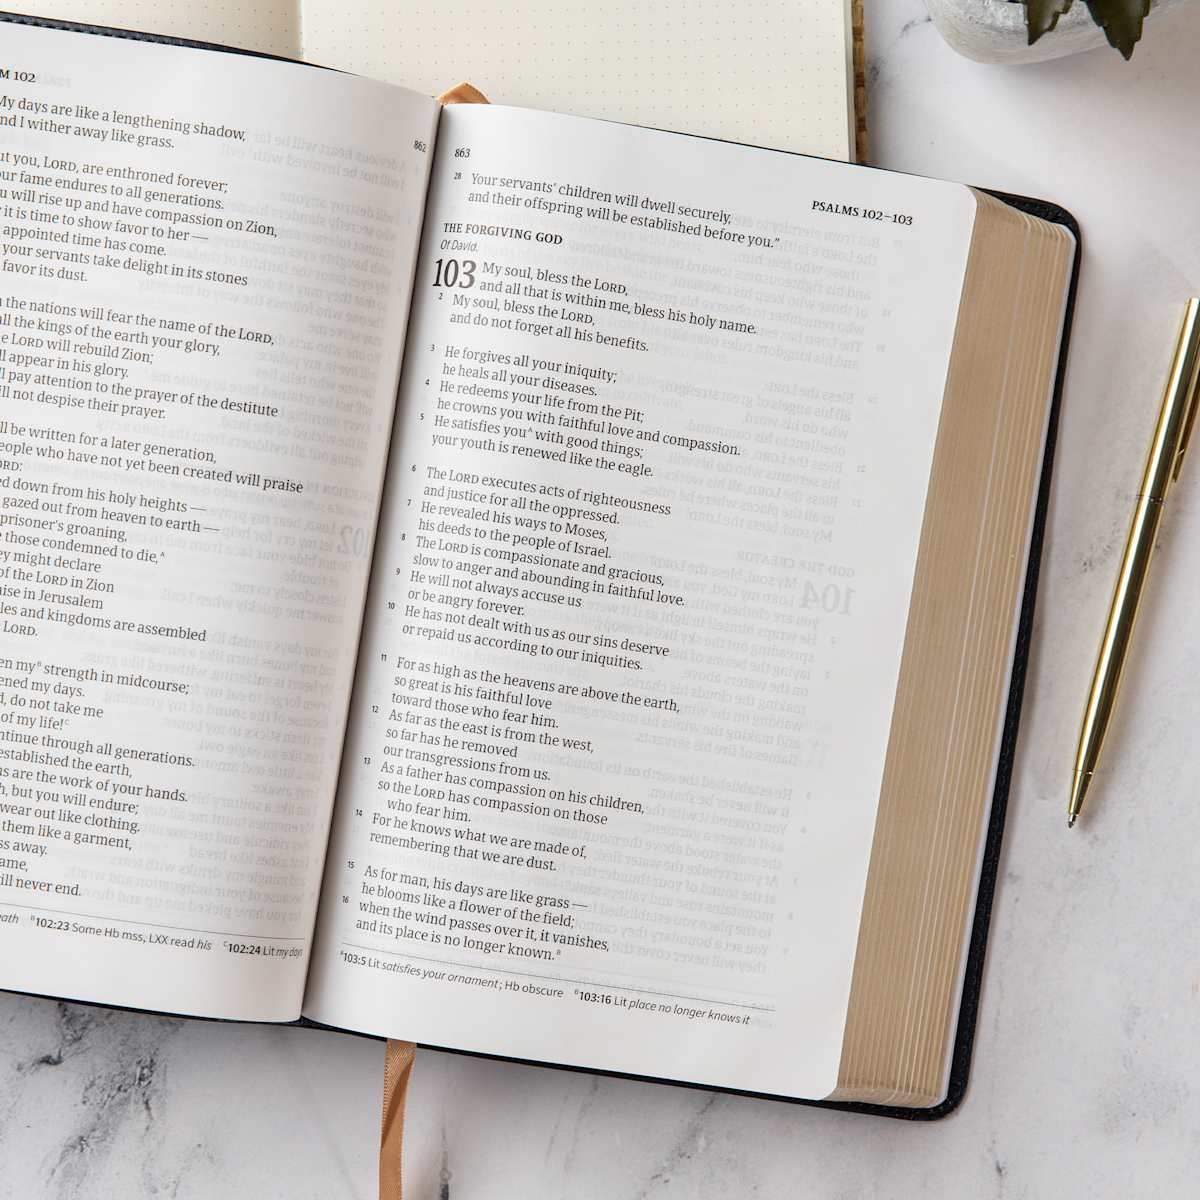 M 102
My days are like a lengthening shadow,
nd I wither away like grass.
ut you, LORD, are enthroned forever;
ur fame endures to all generations.
u will rise up and have compassion on Zion,
it is time to show favor to her —
appointed time has come.
your servants take delight in its stones
favor its dust.
the nations will fear the name of the LORD,
all the kings of the earth your glory,
e LORD will rebuild Zion;
ll appear in his glory.
ll pay attention to the prayer of the destitute
ill not despise their prayer.
ll be written for a later generation,
eople who have not yet been created will praise
ORD:
ed down from his holy heights —
gazed out from heaven to earth —
prisoner's groaning,
those condemned to die,ᴬ
ey might declare
of the LORD in Zion
aise in Jerusalem
les and kingdoms are assembled
LORD.
en myᴮ strength in midcourse;
ened my days.
d, do not take me
of my life!ᶜ
ntinue through all generations.
established the earth,
ns are the work of your hands.
h, but you will endure;
wear out like clothing.
them like a garment,
ss away.
ame,
ill never end.
ath ᴮ102:23 Some Hb mss, LXX read his ᶜ102:24 Lit my days
862
863
PSALMS 102–103
28 Your servants' children will dwell securely,
and their offspring will be established before you."
THE FORGIVING GOD
Of David.
103 My soul, bless the LORD,
and all that is within me, bless his holy name.
2 My soul, bless the LORD,
and do not forget all his benefits.
3 He forgives all your iniquity;
he heals all your diseases.
4 He redeems your life from the Pit;
he crowns you with faithful love and compassion.
5 He satisfies youᴬ with good things;
your youth is renewed like the eagle.
6 The LORD executes acts of righteousness
and justice for all the oppressed.
7 He revealed his ways to Moses,
his deeds to the people of Israel.
8 The LORD is compassionate and gracious,
slow to anger and abounding in faithful love.
9 He will not always accuse us
or be angry forever.
10 He has not dealt with us as our sins deserve
or repaid us according to our iniquities.
11 For as high as the heavens are above the earth,
so great is his faithful love
toward those who fear him.
12 As far as the east is from the west,
so far has he removed
our transgressions from us.
13 As a father has compassion on his children,
so the LORD has compassion on those
who fear him.
14 For he knows what we are made of,
remembering that we are dust.
15 As for man, his days are like grass —
he blooms like a flower of the field;
16 when the wind passes over it, it vanishes,
and its place is no longer known.ᴮ
ᴬ103:5 Lit satisfies your ornament; Hb obscure ᴮ103:16 Lit place no longer knows it